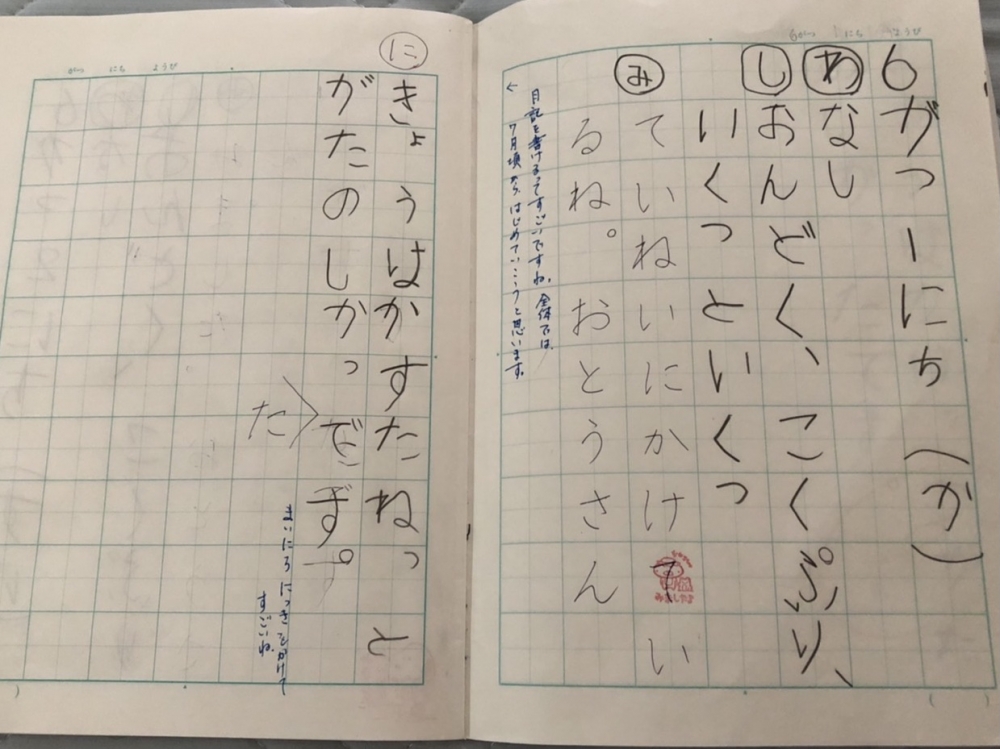 がつ にち ようび
6がつ一にち(か)
わ なし
し おんどく、こくぷり、
いくつといくつ
み ていねいにかけてい
るね。おとうさん
みましたよ
月記を書けるってすごいですね。全体では、
7月頃から、はじめていこうと思います。
がつ にち ようび
に きょうはかすたねっと
がたのしかっでず。
た
まいにちにっきをかけて
すごいね